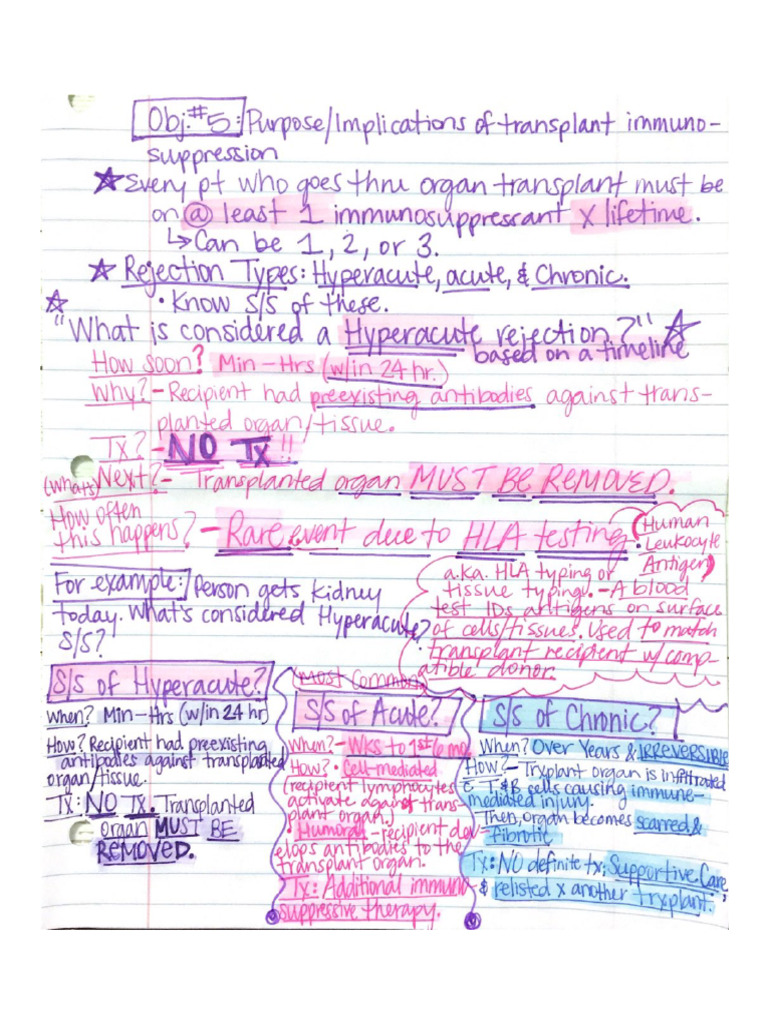 Obj.#5: Purpose/Implications of transplant immuno-
suppression
☆ Every pt who goes thru organ transplant must be
on @ least 1 immunosuppressant x lifetime.
↳ Can be 1, 2, or 3.
☆ Rejection Types: Hyperacute, acute, & Chronic.
☆ • Know S/S of these.
"What is considered a Hyperacute rejection?" ☆
based on a timeline
How soon? Min-Hrs (w/in 24 hr.)
Why? - Recipient had preexisting antibodies against trans-
planted organ/tissue.
Tx? - NO Tx!!
(Whats) Next? - Transplanted organ MUST BE REMOVED.
How often
this happens? - Rare event due to HLA testing.
(Human
Leukocyte
Antigen)
a.k.a. HLA typing or
tissue typing! - A blood
test IDs antigens on surface
of cells/tissues. Used to match
transplant recipient w/ comp-
atible donor.
For example: Person gets kidney
today. What's considered Hyperacute?
S/S?
S/S of Hyperacute?
When? Min-Hrs (w/in 24 hr)
How? Recipient had preexisting
antibodies against transplanted
organ/tissue.
Tx: NO Tx. Transplanted
organ MUST BE
REMOVED.
most common
S/S of Acute?
When? - WKS to 1st 6 mo.
How? • Cell-mediated
(recipient lymphocytes
activate against trans-
plant organ.)
• Humoral - recipient dev-
elops antibodies to the
transplant organ.
Tx: Additional immuno-
suppressive therapy.
S/S of Chronic?
When? Over Years & IRREVERSIBLE
How? - Trxplant organ is infiltrated
c̄ T&B cells causing immune-
mediated injury.
- Then, organ becomes scarred &
fibrotic
Tx: NO definite tx; Supportive Care,
& relisted x another trxplant.